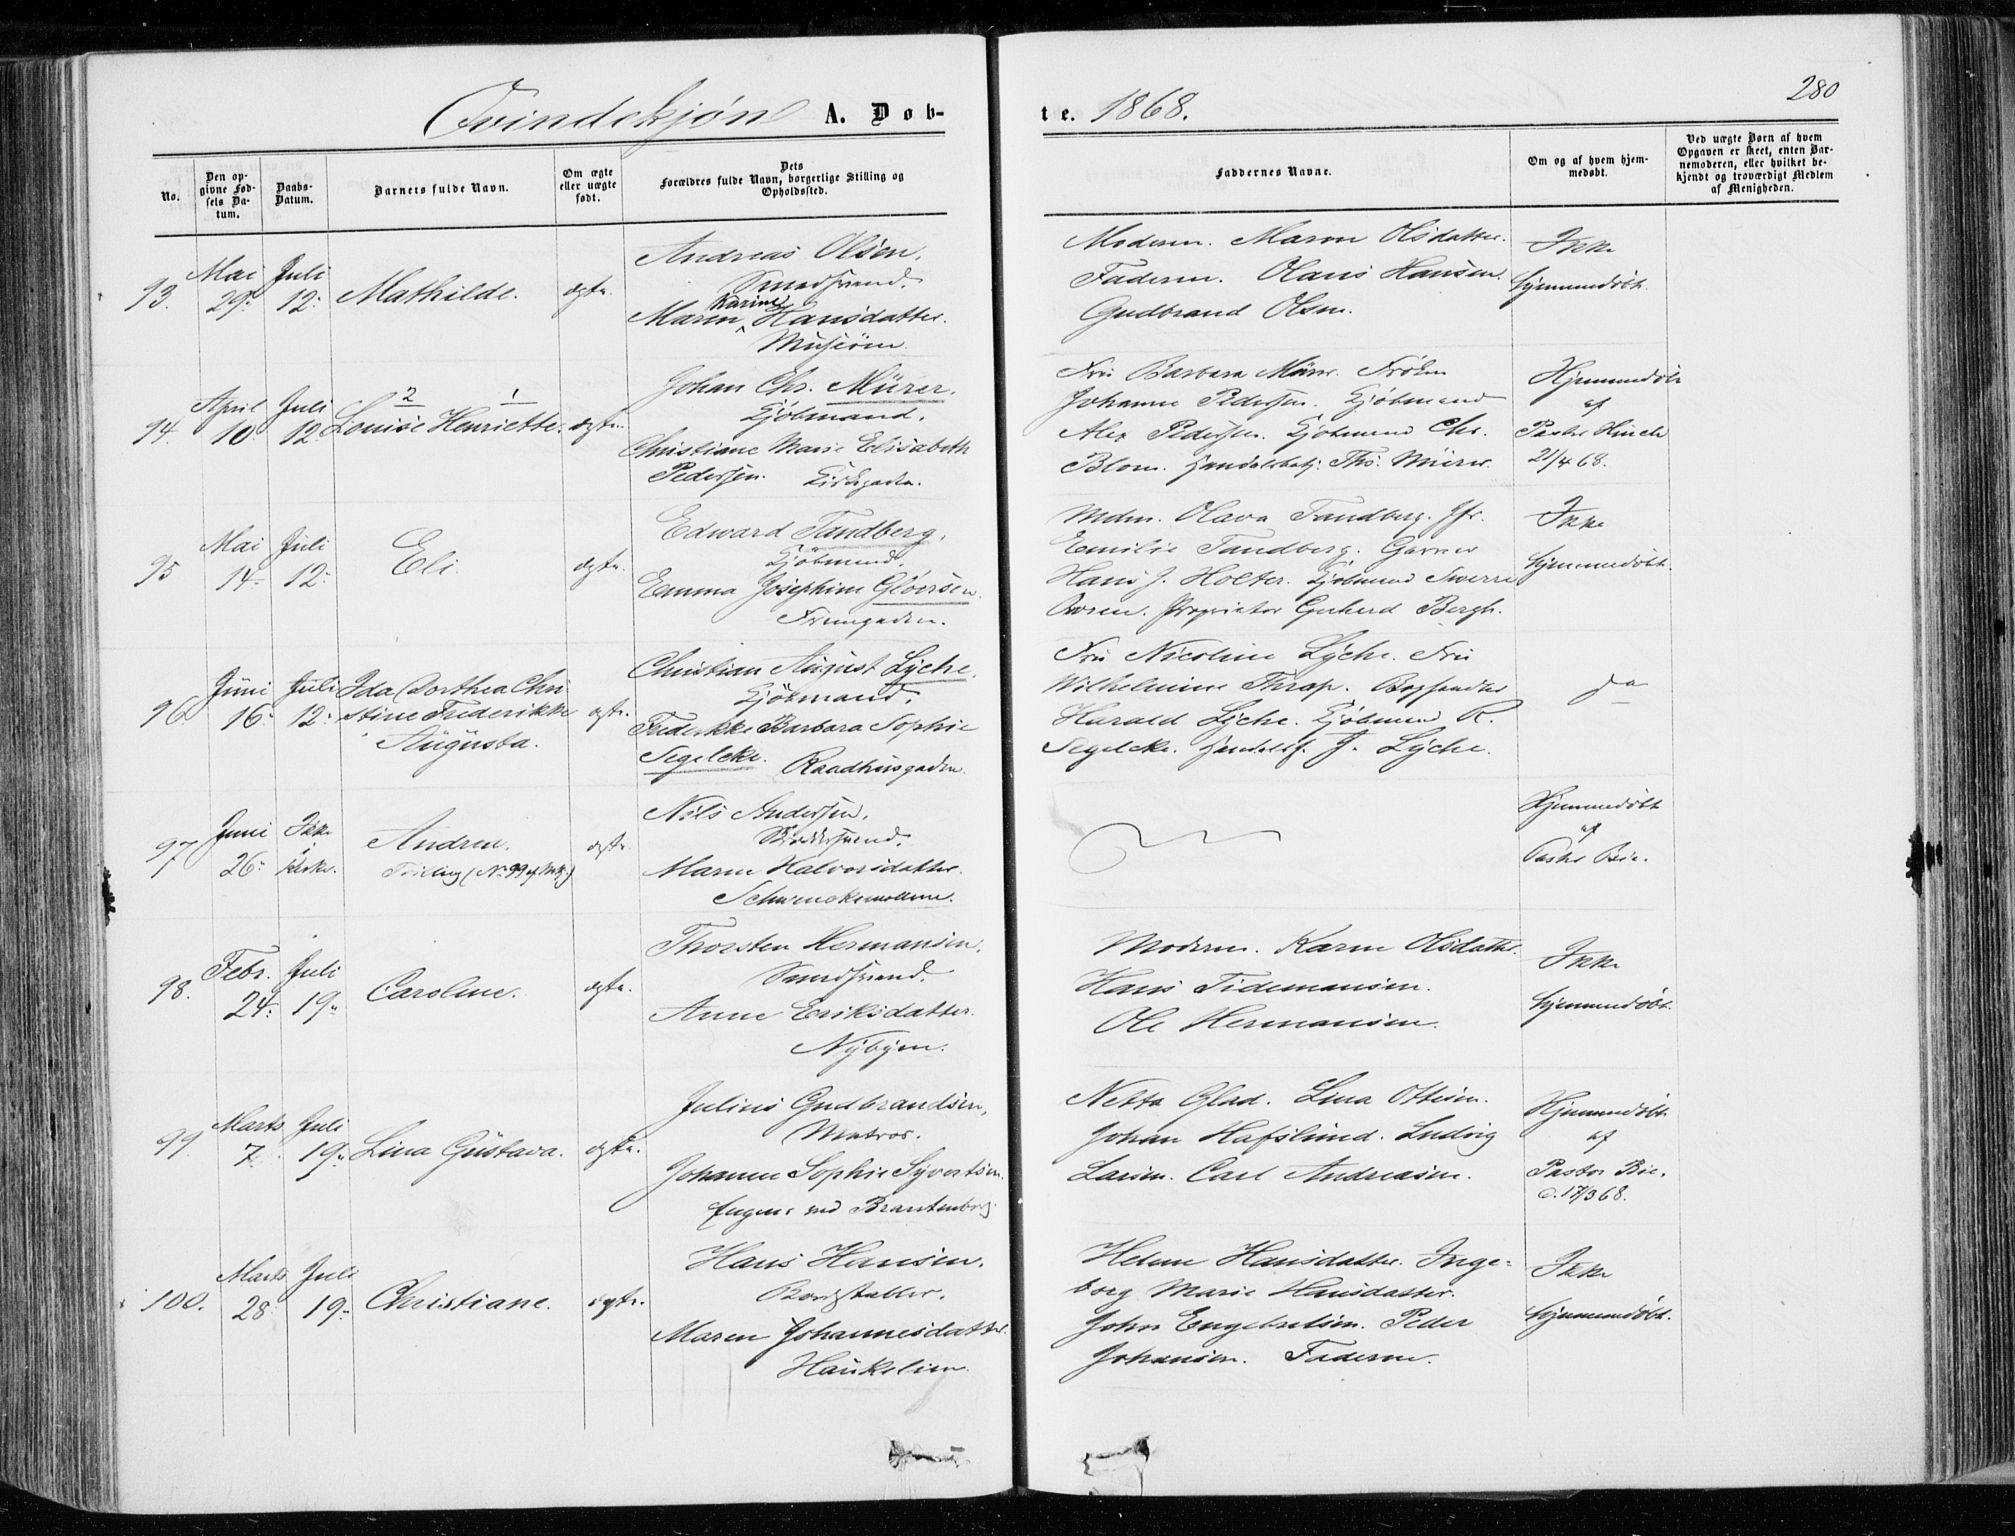 280
Qvindekjøn A. Døb-
te. 1868.
No.
Den op-
givne Fød-
sels Da-
tum.
Daabs-
Datum.
Barnets fulde Navn.
Om ægte
eller uægte
født.
Dets
Forældres fulde Navn, borgerlige Stilling og
Opholdssted.
Faddernes Navne.
Om og af hvem hjem-
medøbt.
Ved uægte Børn af hvem
Opgaven er skeet, enten Bar-
nemoderen, eller hvilket be-
kjendt og troværdigt Medlem
af Menigheden.
93.
Mai
29.
Juli
12.
Mathilde.
ægte.
Andreas Olsen.
Smedsvend.
Karine
Maren Hansdatter.
Moderen. Maren Olsdatter.
Faderen. Olaus Hansen.
Gudbrand Olsen.
Ikke
hjemmedøbt.
94.
April
10
Juli
12.
2 1
Louise Henriette.
ægte.
Johan Chr. Mürer.
Kjøbmand.
Christiane Marie Elisabeth
Pedersen. Kirkegaden.
Fru Barbara Mürer. Frøken
Johanne Pedersen. Kjøbmand
Alex Pedersen. Kjøbmand Chr.
Blom. Ths. Mürer.
Hjemmedøbt
af
Pastor
21/4 68.
95
Mai
14.
Juli
12.
Eli.
ægte.
Edward Tandberg.
Kjøbmand.
Emma Josephine Gløersen.
Mdm. Olava Tandberg. Jfr.
Emilie Tandberg. Garver
Hans J. Holter. Kjøbmand Sverre
Ovren. Proprietær Gerhard Bergh.
Ikke
hjemmedøbt.
96
Juni
16.
Juli
12.
Ida Dorthea Chri
stine Frederikke
Augusta.
ægte.
Christian August Lyche.
Kjøbmand.
Frederikke Barbara Sophie
Segelcke. Raadhusgaden.
Fru Nicoline Lyche. Fru
Wilhelmine Thrap. Bogholder
Harald Lyche. Kjøbmand R.
Segelcke. Handelsf. J. Lyche.
97
Juni
26.
Ikke
i
kirke.
Andrea.
Tvilling (No 99 af Mkj.)
ægte.
Nils Andersen.
Maren Halvorsdatter.
Schwenckemollerne.
Hjemmedøbt
af
Pastor Bie.
98.
Febr.
24.
Juli
19.
Caroline.
ægte.
Thorsten Hermansen.
Smedsvend.
Anne Eriksdatter.
Nybyen.
Moderen. Karen Olsdatter.
Hans Tidemansen.
Ole Hermansen.
Ikke
hjemmedøbt.
99.
Marts
7.
Juli
19.
Lina Gustava.
ægte.
Julius Gudbrandsen,
Matros.
Johanne Sophie Syvertsen.
Engene ved Brantenborg.
Netta Glad. Lina Ottesen.
Johan Hafslund. Ludvig
Larsen. Carl Andreasen.
Hjemmedøbt
af
Pastor Bie.
d. 17/3 68.
100.
Marts
28.
Juli
19.
Christiane.
ægte.
Hans Hansen.
Bordstabler.
Maren Johannesdatter.
Haukelien.
Helene Hansdatter. Inge-
borg Marie Hansdatter.
John Engebretsen. Peder
Johansen. Faderen.
Ikke
hjemmedøbt.